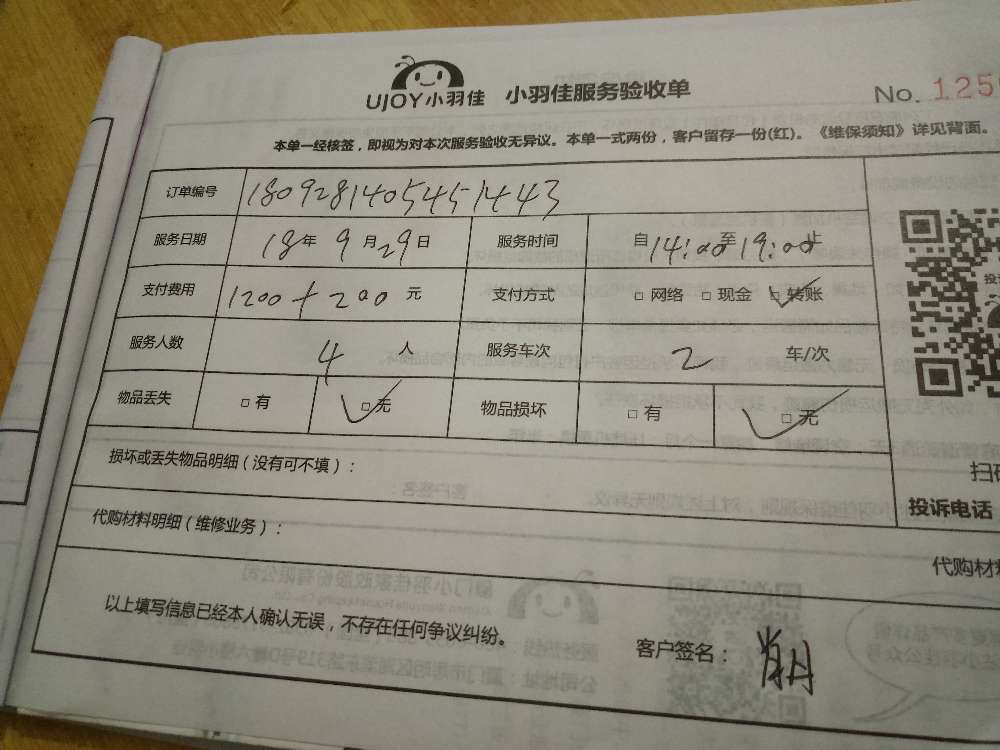 UJOY小羽佳 小羽佳服务验收单 No. 125
本单一经核签，即视为对本次服务验收无异议。本单一式两份，客户留存一份(红)。《维保须知》详见背面。
订单编号 180928140545-1443
服务日期 18年 9月29日 服务时间 自14:00至19:00止
支付费用 1200+200 元 支付方式 □ 网络 □ 现金 □ 转账
服务人数 4 人 服务车次 2 车/次
物品丢失 □ 有 □ 无 物品损坏 □ 有 □ 无
损坏或丢失物品明细（没有可不填）：
扫
投诉电话
代购材料明细（维修业务）：
代购材
以上填写信息已经本人确认无误，不存在任何争议纠纷。
客户签名：